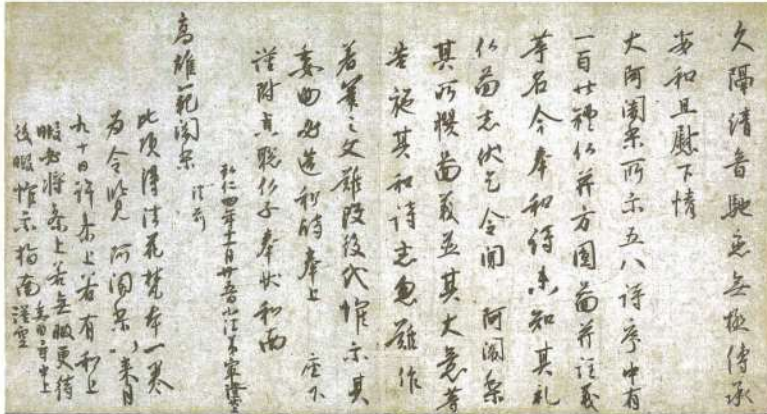 久隔清音馳恋無極傳承
安和且慰下情
大阿闍梨所示五八詩序中有
一百廿禮仏并方圓圖并註義
等名今奉和詩未知其礼
仏圖者伏乞令聞 阿闍梨
其所撰圖義并其大意等
告施其和詩者忽難作
著筆之文難改後代惟示其
委曲必造和詩奉上 座下
謹附貞聡仏子奉状和南
弘仁四年十一月廿五日小法弟最澄状上
高雄範闍梨 法前
此頃得法花梵本一巻
為令覧 阿闍梨以来月
九十日許参上若有和上
暇必将参上若無暇更待
後暇惟示指南 謹空